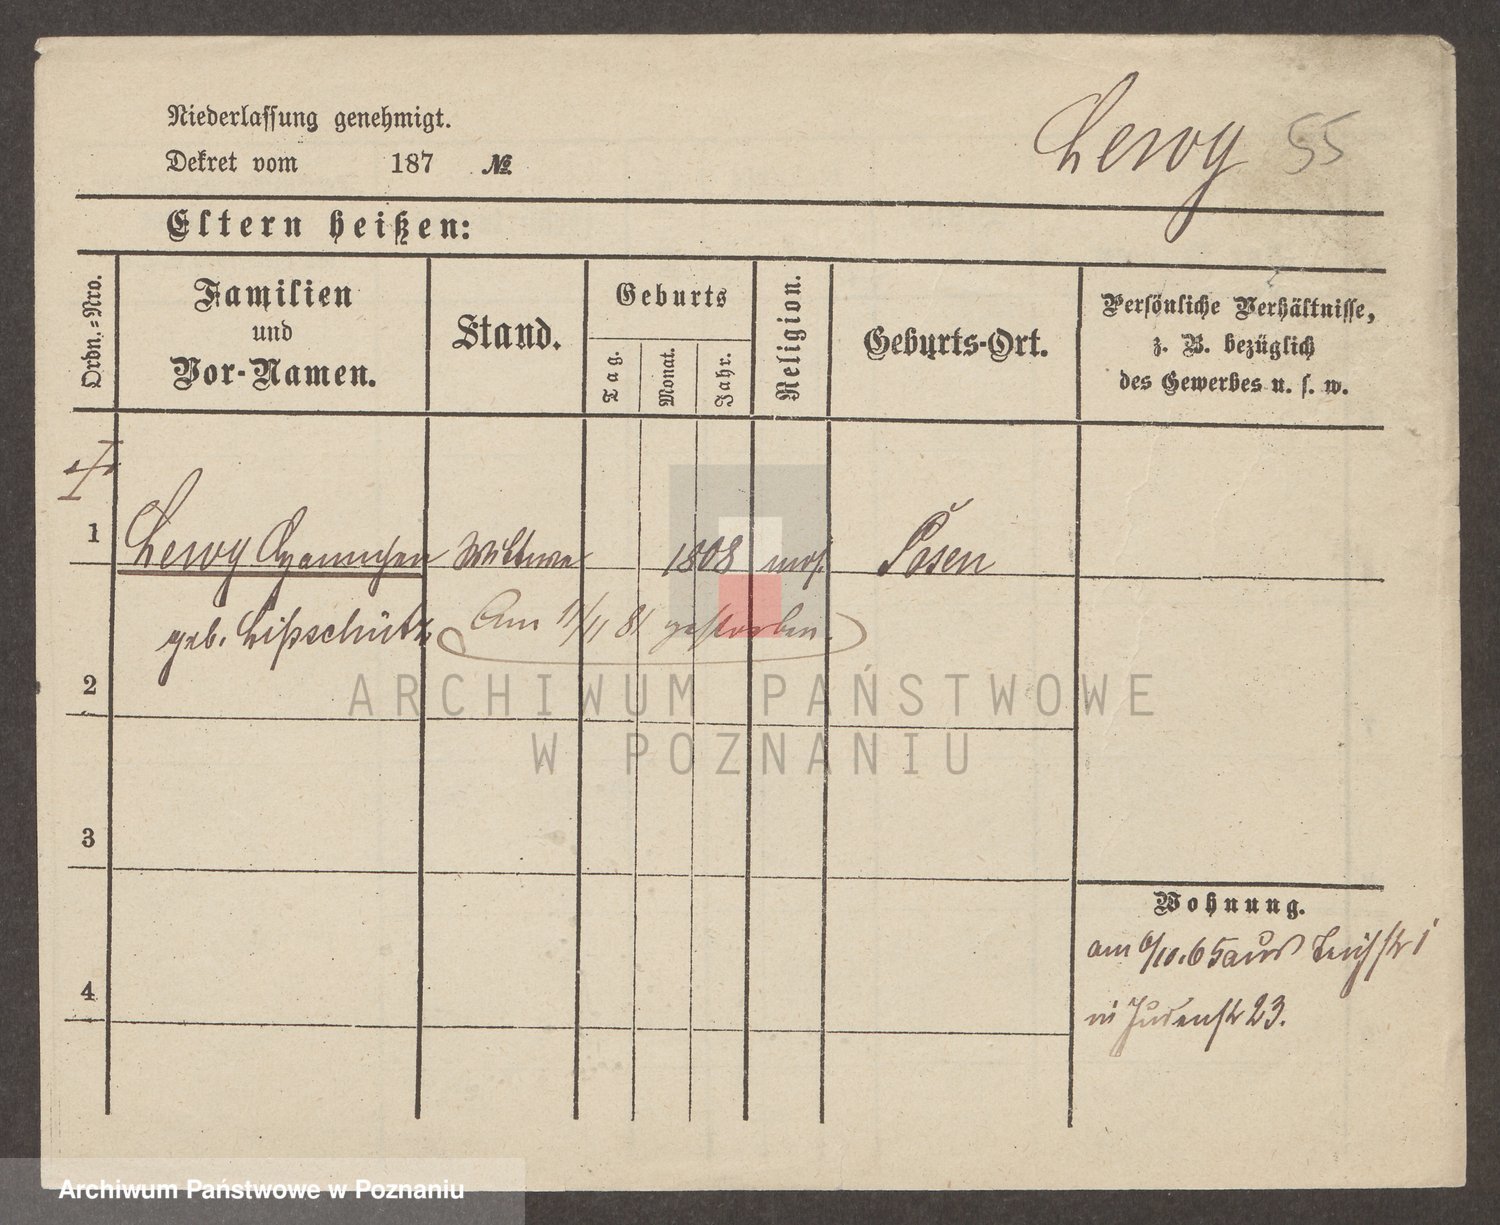 Niederlassung genehmigt.
Lewy 55
Dekret vom 187 №
Eltern heißen:
Ordn.=Nro.
Familien
und
Vor-Namen.
Stand.
Geburts
Tag.
Monat.
Jahr.
Religion.
Geburts-Ort.
Persönliche Verhältnisse,
z. B. bezüglich
des Gewerbes u. s. w.
1 Lewy Wittwe 1808 mos. Posen
geb. Lißschütz Am 11/11 81 gestorben.
2
ARCHIWUM PAŃSTWOWE
W POZNANIU
3
Wohnung.
am 6/10.65 aus Teichstr 1
4
in Judenstr 23.
Archiwum Państwowe w Poznaniu